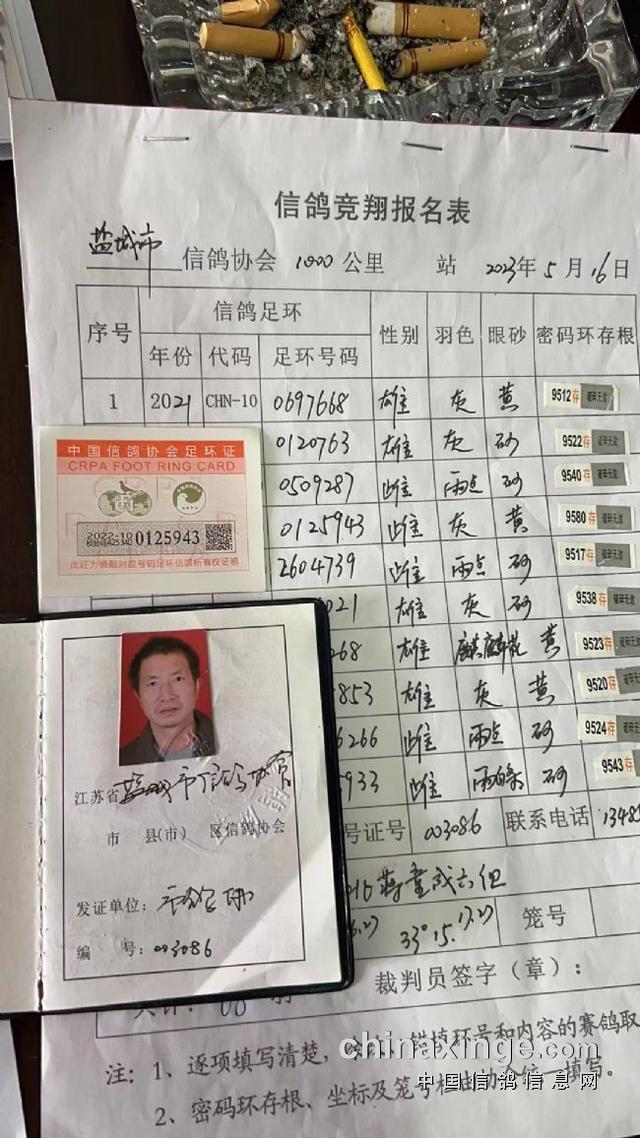 信鸽竞翔报名表
盐城市 信鸽协会 1000 公里 站 2023年 5 月 16 日
序号 信鸽足环 性别 羽色 眼砂 密码环存根
年份 代码 足环号码
1 2021 CHN-10 0697668 雄 灰 黄 9512存 破碎无效
0120763 雄 灰 砂 9522存 破碎无效
0509287 雌 雨点 砂 9540存 破碎无效
0125943 雌 灰 黄 9580存 破碎无效
2604739 雌 雨点 砂 9517存 破碎无效
021 雄 灰 砂 9538存 破碎无效
268 雄 麒麟花 黄 9523存 破碎无效
853 雄 灰 黄 9520存 破碎无效
6266 雌 雨点 砂 9524存 破碎无效
933 雌 雨白条 砂 9543存
号证号 003086 联系电话 13485
笼号
裁判员签字（章）：
注：1、逐项填写清楚， 错填环号和内容的赛鸽取
2、密码环存根、坐标及笼号栏由协会统一填写。
中国信鸽协会足环证
CRPA FOOT RING CARD
2022-10 0125943
此证为佩戴对应号码足环信鸽所有权证明
江苏省
市 县(市) 区信鸽协会
发证单位：
编 号：003086
chinaxinge.com
中国信鸽信息网